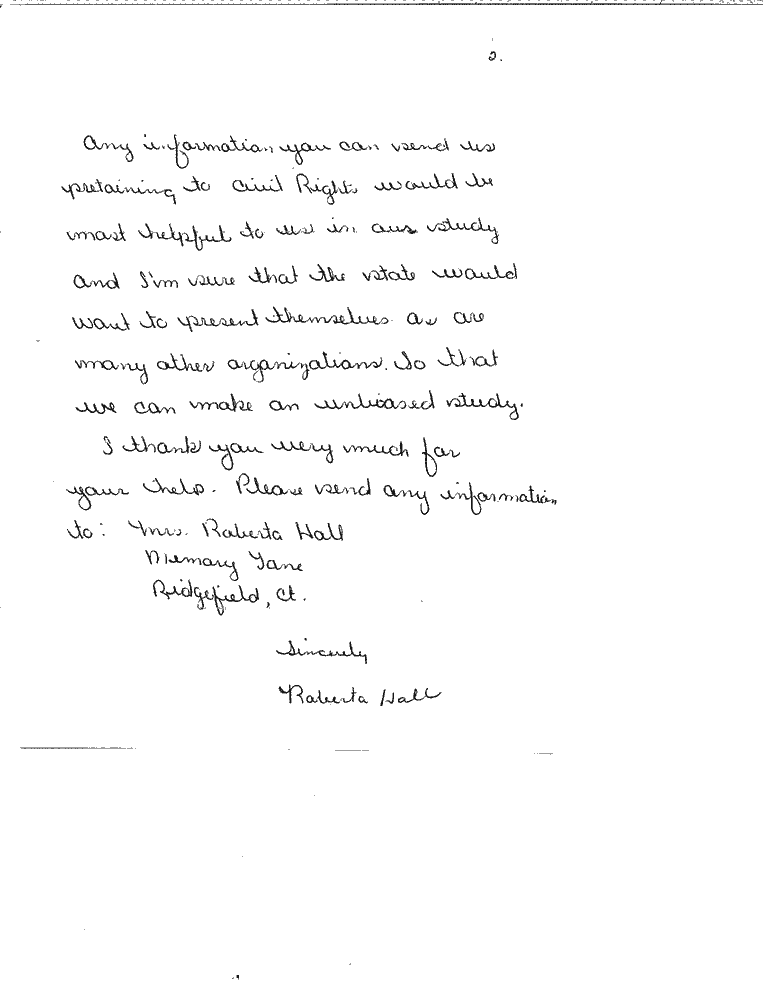 2.
Any information you can send us
pretaining to Civil Rights would be
most helpful to us in our study
and I'm sure that the state would
want to present themselves as are
many other organizations. So that
we can make an unbiased study.
I thank you very much for
your help. Please send any information
to: Mrs. Roberta Hall
Memory Lane
Ridgefield, Ct.
Sincerely
Roberta Hall